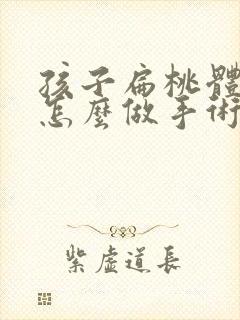 孩子扁桃體
怎麼做手術
紫虛道長